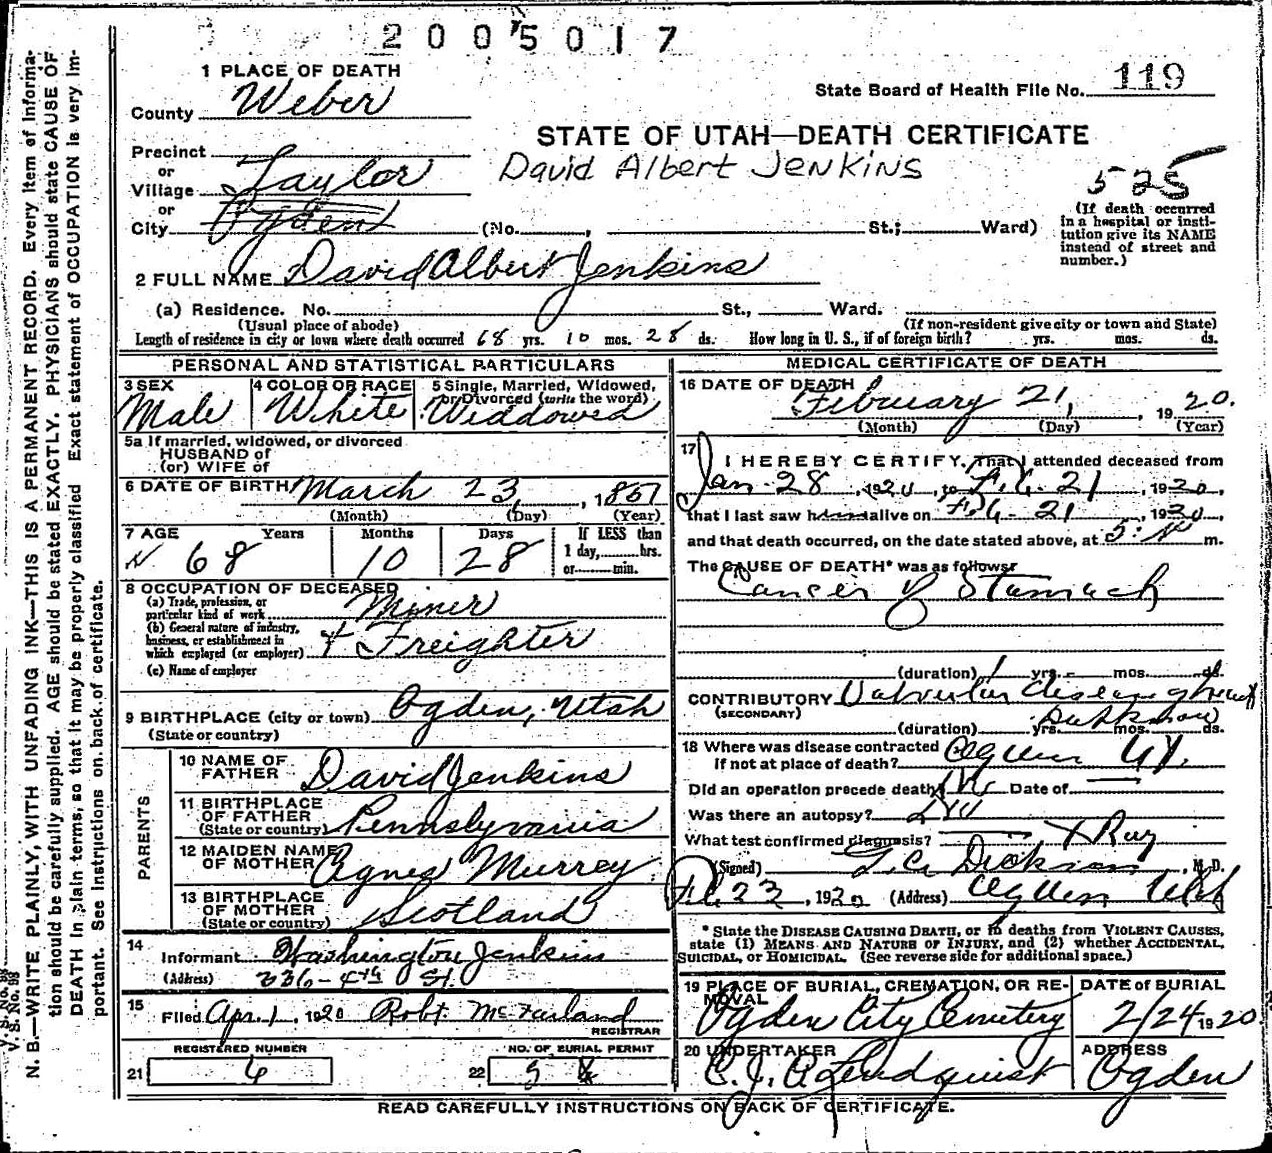 2005017
1 PLACE OF DEATH
County Weber
State Board of Health File No. 119
STATE OF UTAH—DEATH CERTIFICATE
David Albert Jenkins
Precinct
or
Village Taylor
or
City Ogden (No. , St.; Ward)
525
(If death occurred
in a hospital or insti-
tution give its NAME
instead of street and
number.)
2 FULL NAME David Albert Jenkins
(a) Residence. No. St., Ward.
(Usual place of abode) (If non-resident give city or town and State)
Length of residence in city or town where death occurred 68 yrs. 10 mos. 28 ds. How long in U. S., if of foreign birth? yrs. mos. ds.
PERSONAL AND STATISTICAL PARTICULARS
3 SEX Male
4 COLOR OR RACE White
5 Single, Married, Widowed,
or Divorced (write the word)
Widdowed
5a If married, widowed, or divorced
HUSBAND of
(or) WIFE of
6 DATE OF BIRTH March 23, 1851
(Month) (Day) (Year)
7 AGE Years Months Days If LESS than
68 10 28 1 day, hrs.
or min.
8 OCCUPATION OF DECEASED
(a) Trade, profession, or
particular kind of work Miner
(b) General nature of industry,
business, or establishment in
which employed (or employer) + Freighter
(c) Name of employer
9 BIRTHPLACE (city or town) Ogden, Utah
(State or country)
PARENTS
10 NAME OF
FATHER David Jenkins
11 BIRTHPLACE
OF FATHER
(State or country) Pennslyvania
12 MAIDEN NAME
OF MOTHER Agnes Murrey
13 BIRTHPLACE
OF MOTHER
(State or country) Scotland
14
Informant Washington Jenkins
(Address) 336-4th St.
15
Filed Apr. 1, 1920 Robt. McFarland
REGISTRAR
REGISTERED NUMBER
21 6
NO. OF BURIAL PERMIT
22
MEDICAL CERTIFICATE OF DEATH
16 DATE OF DEATH
February 21, 1920.
(Month) (Day) (Year)
17
I HEREBY CERTIFY, That I attended deceased from
Jan. 28, 1920, to Feb. 21, 1920,
that I last saw him alive on Feb. 21, 1920,
and that death occurred, on the date stated above, at 5: m.
The CAUSE OF DEATH* was as follows:
Cancer of Stomach
(duration) 1 yrs. - mos. ds.
CONTRIBUTORY Valvular disease of heart
(SECONDARY)
(duration) yrs. mos. ds.
18 Where was disease contracted
If not at place of death? Ogden Ut.
Did an operation precede death? No Date of
Was there an autopsy?
What test confirmed diagnosis? X Ray
(Signed) Dickson, M. D.
Feb. 23, 1920 (Address) Ogden Utah
* State the DISEASE CAUSING DEATH, or in deaths from VIOLENT CAUSES,
state (1) MEANS AND NATURE OF INJURY, and (2) whether ACCIDENTAL,
SUICIDAL, or HOMICIDAL. (See reverse side for additional space.)
19 PLACE OF BURIAL, CREMATION, OR RE-
MOVAL
Ogden City Cemetery
DATE of BURIAL
2/24 1920
20 UNDERTAKER
Lindquist
ADDRESS
Ogden
READ CAREFULLY INSTRUCTIONS ON BACK OF CERTIFICATE.
N. B.—WRITE PLAINLY, WITH UNFADING INK—THIS IS A PERMANENT RECORD. Every item of informa-
tion should be carefully supplied. AGE should be stated EXACTLY. PHYSICIANS should state CAUSE OF
DEATH in plain terms, so that it may be properly classified. Exact statement of OCCUPATION is very im-
portant. See Instructions on back of certificate.
V. S. No. 98